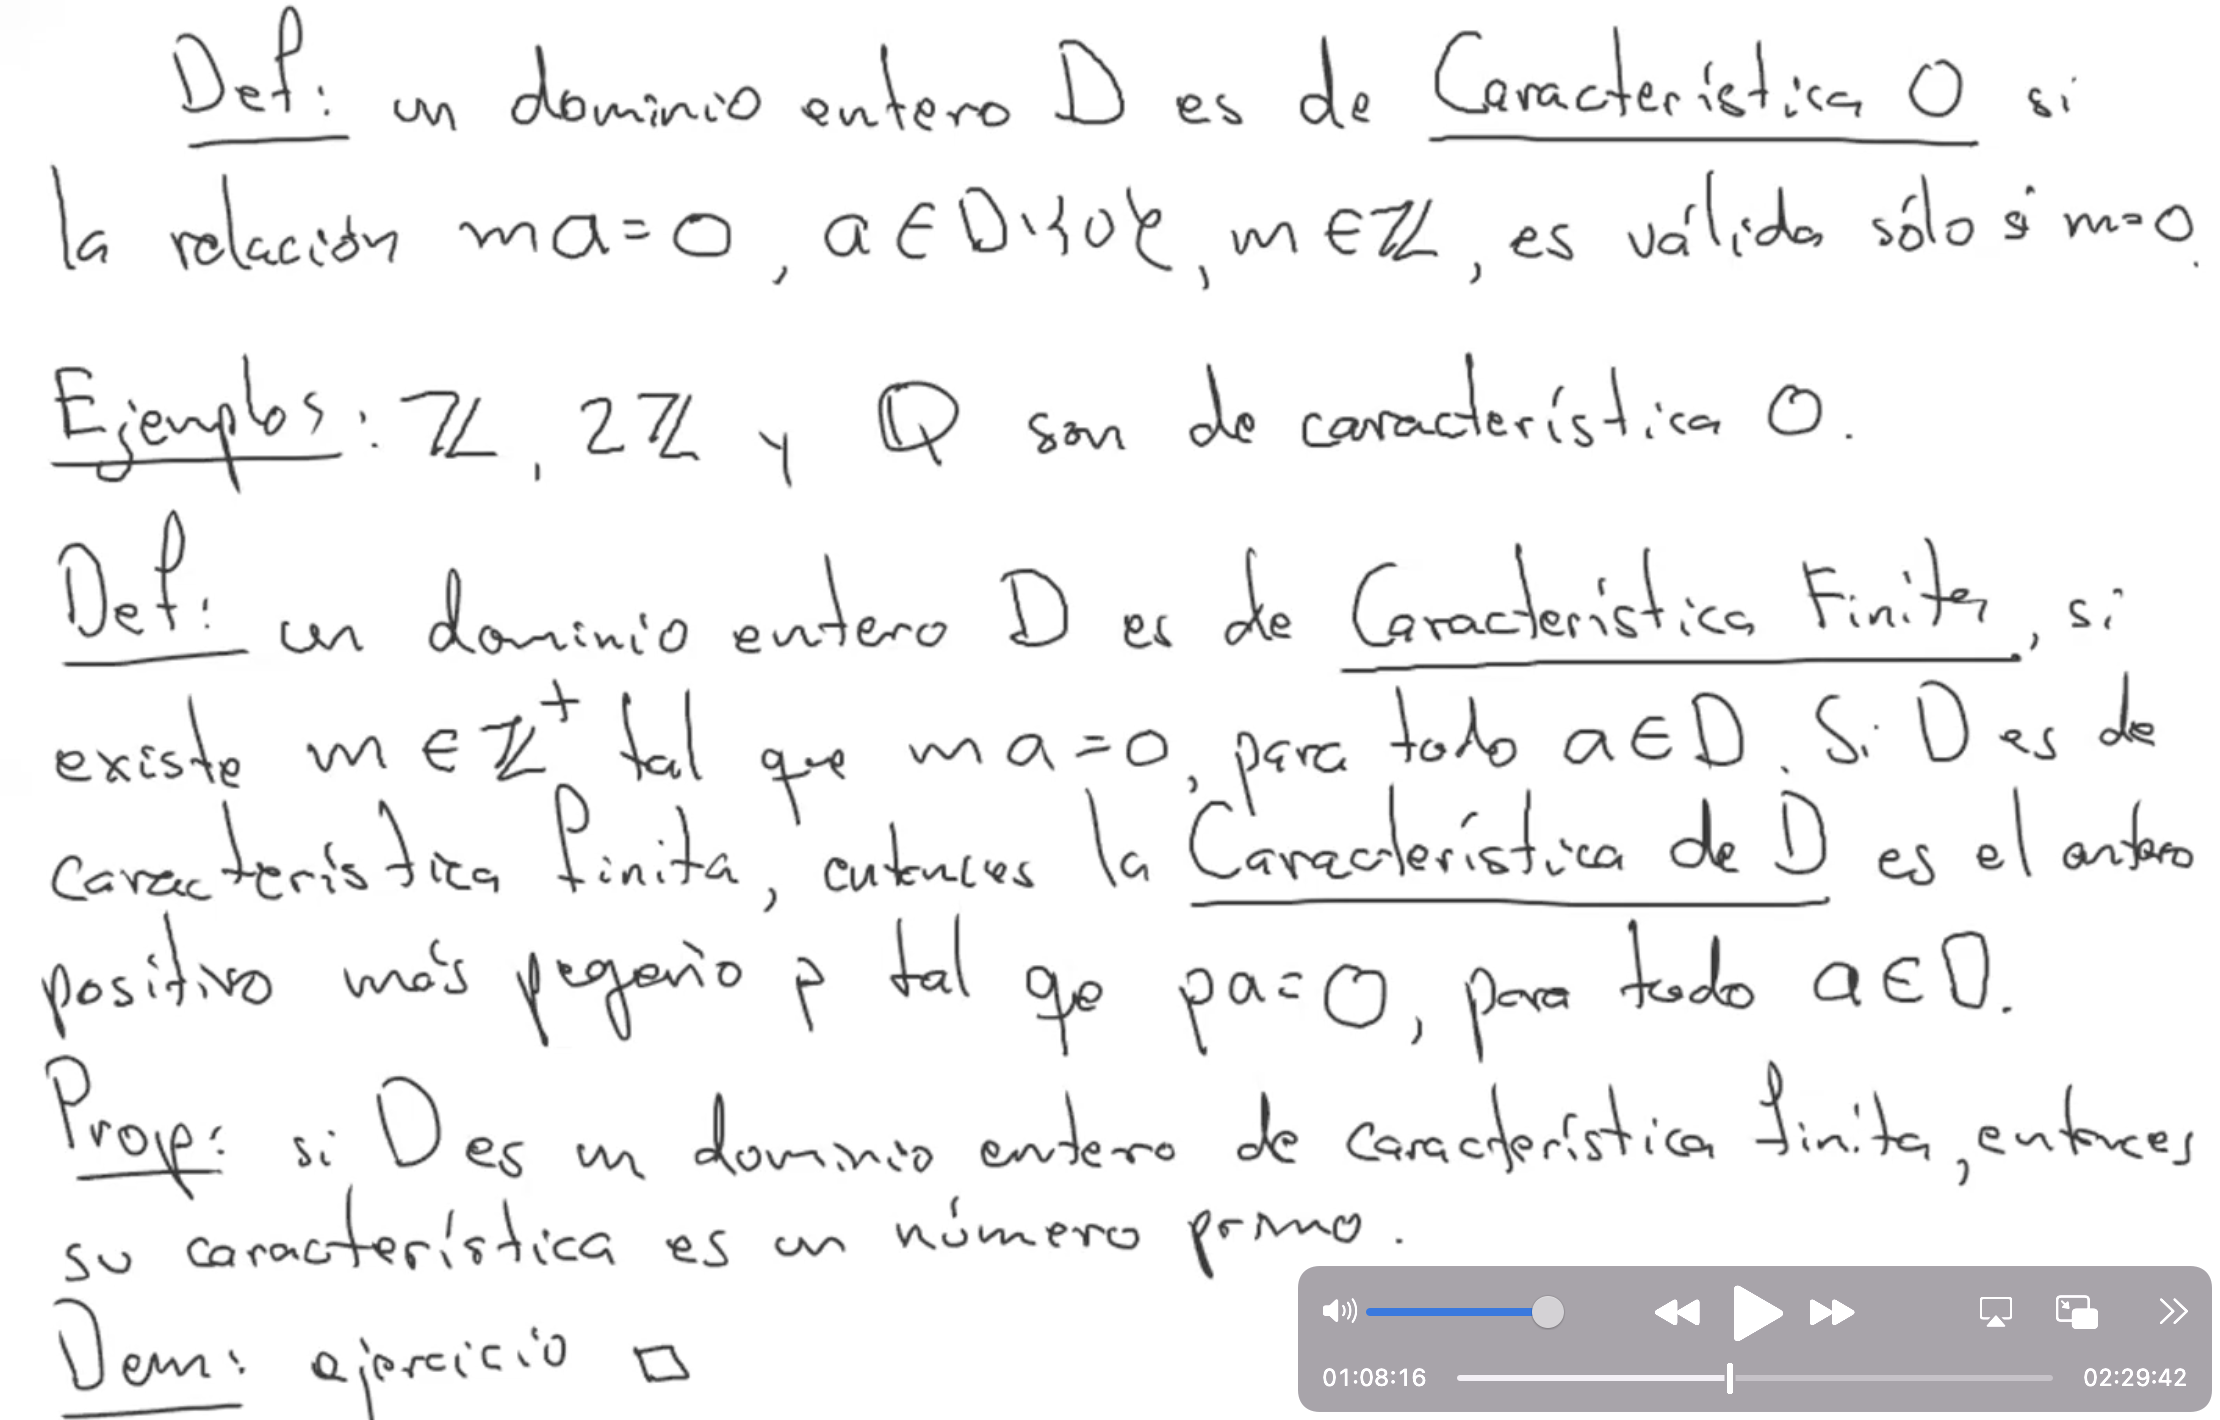 Def: un dominio entero D es de Característica 0 si
la relación ma=0, a∈D\{0}, m∈ℤ, es válida sólo si m=0.
Ejemplos: ℤ, 2ℤ y ℚ son de característica 0.
Def: un dominio entero D es de Característica Finita, si
existe m∈ℤ⁺ tal que ma=0, para todo a∈D. Si D es de
característica finita, entonces la Característica de D es el entero
positivo más pequeño p tal que pa=0, para todo a∈D.
Prop: si D es un dominio entero de característica finita, entonces
su característica es un número primo.
Dem: ejercicio □
01:08:16 02:29:42